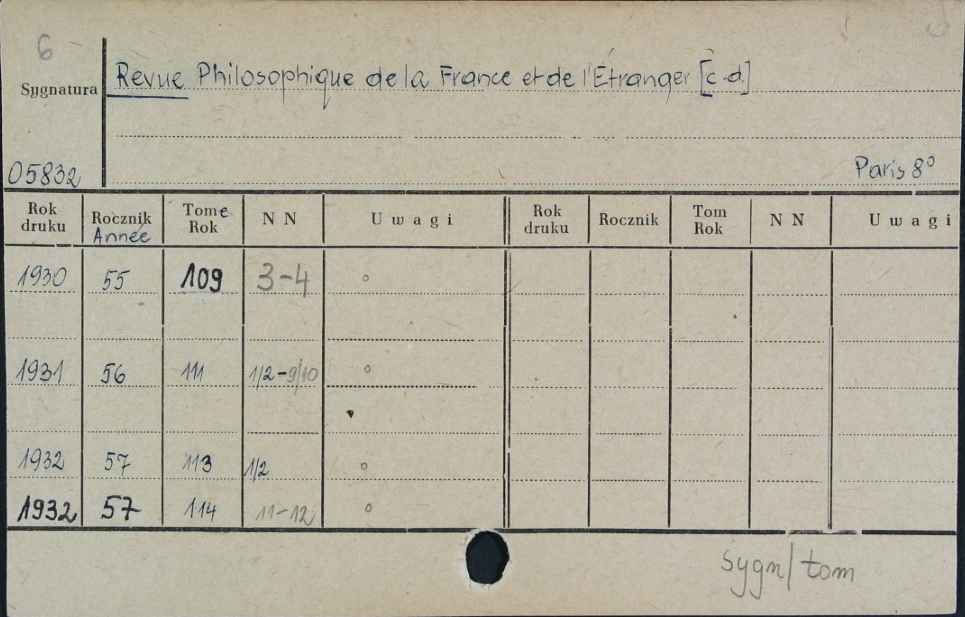 6
Sygnatura
Revue Philosophique de la France et de l'Étranger [c.d.]
05832
Paris 8°
Rok druku Rocznik Année Tome Rok N N Uwagi Rok druku Rocznik Tom Rok N N Uwagi
1930 55 109 3-4
1931 56 111 1/2-9/10
1932 57 113 1/2
1932 57 114 11-12
sygn/tom